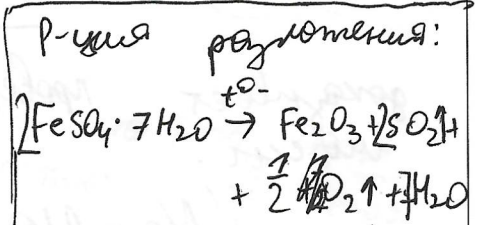 Р-ция разложения:
2FeSO4·7H2O t°→ Fe2O3+2SO2↑+
+ 1/2 O2↑+7H2O